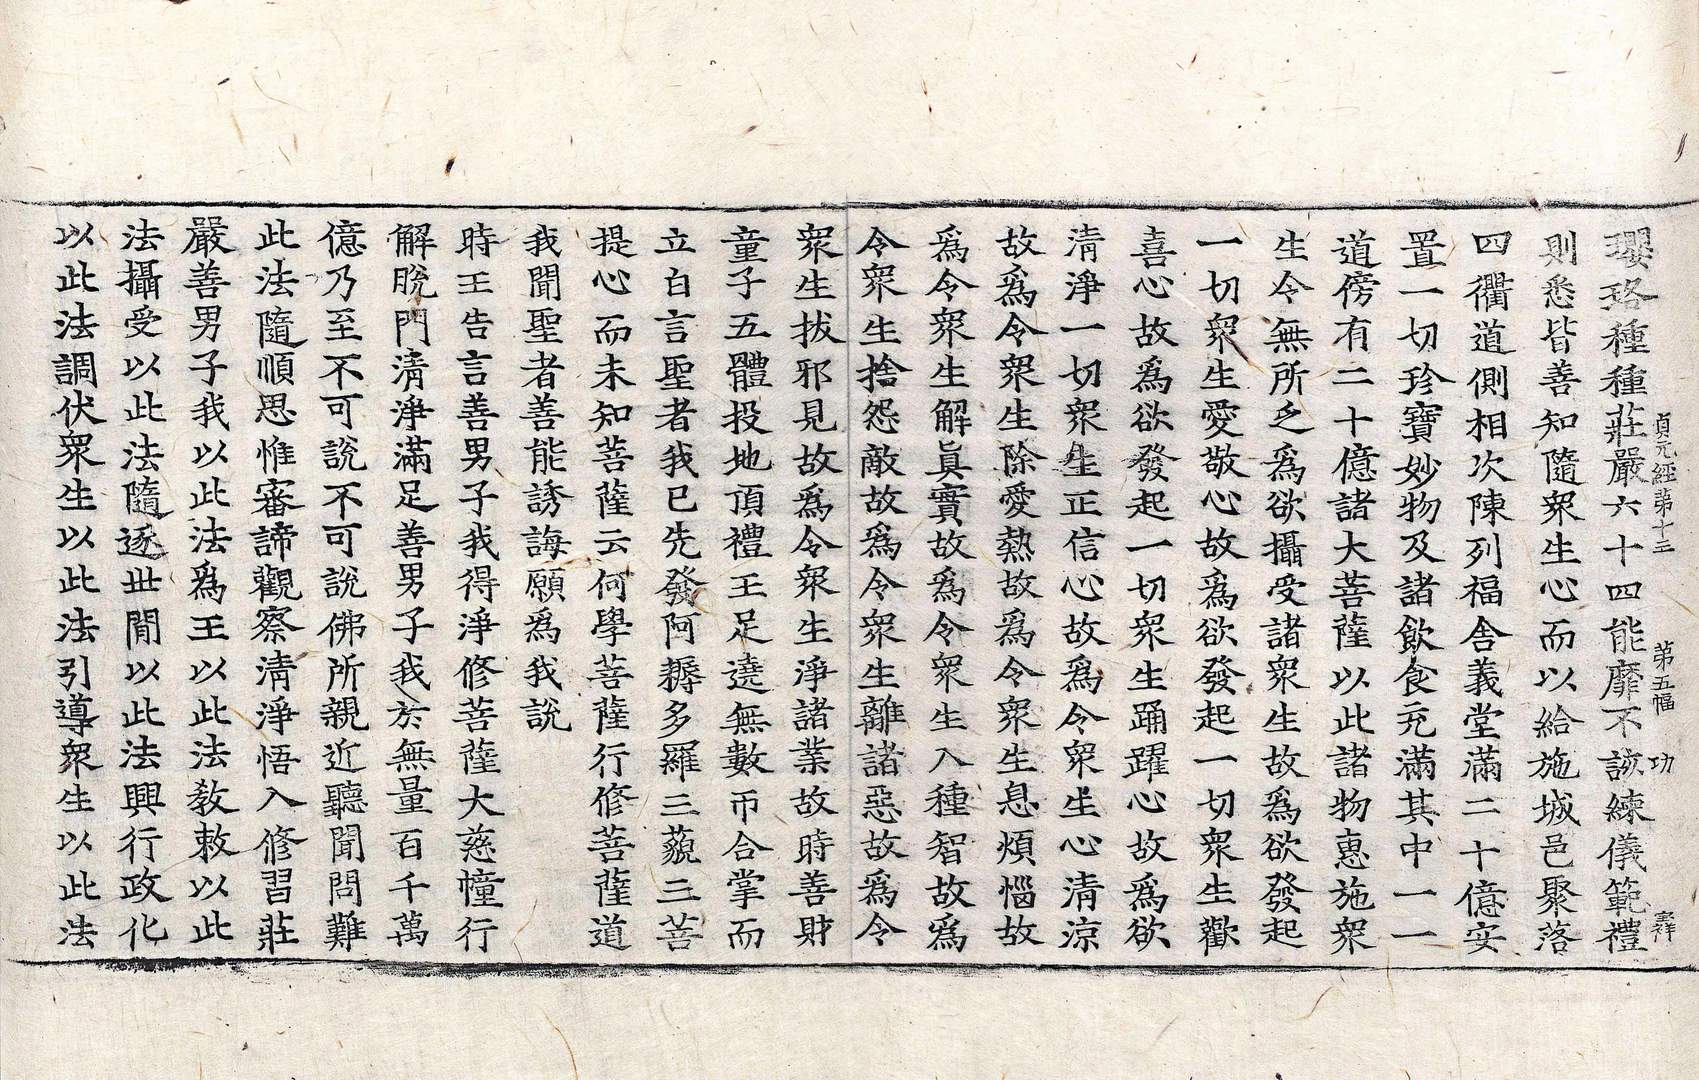 貞元經第十三 第五幅 功
瓔珞種種莊嚴六十四能靡不該練儀範禮
則悉皆善知隨衆生心而以給施城邑聚落
四衢道側相次陳列福舍義堂滿二十億安
置一切珍寶妙物及諸飮食充滿其中一一
道傍有二十億諸大菩薩以此諸物惠施衆
生令無所乏爲欲攝受諸衆生故爲欲發起
一切衆生愛敬心故爲欲發起一切衆生歡
喜心故爲欲發起一切衆生踊躍心故爲欲
淸淨一切衆生正信心故爲令衆生心淸涼
故爲令衆生除愛熱故爲令衆生息煩惱故
爲令衆生解眞實故爲令衆生入種智故爲
令衆生捨怨敵故爲令衆生離諸惡故爲令
衆生拔邪見故爲令衆生淨諸業故時善財
童子五體投地頂禮王足遶無數帀合掌而
立白言聖者我已先發阿耨多羅三藐三菩
提心而未知菩薩云何學菩薩行修菩薩道
我聞聖者善能誘誨願爲我說
時王告言善男子我得淨修菩薩大慈幢行
解脫門淸淨滿足善男子我於無量百千萬
億乃至不可說不可說佛所親近聽聞問難
此法隨順思惟審諦觀察淸淨悟入修習莊
嚴善男子我以此法爲王以此法敎敕以此
法攝受以此法隨逐世閒以此法興行政化
以此法調伏衆生以此法引導衆生以此法